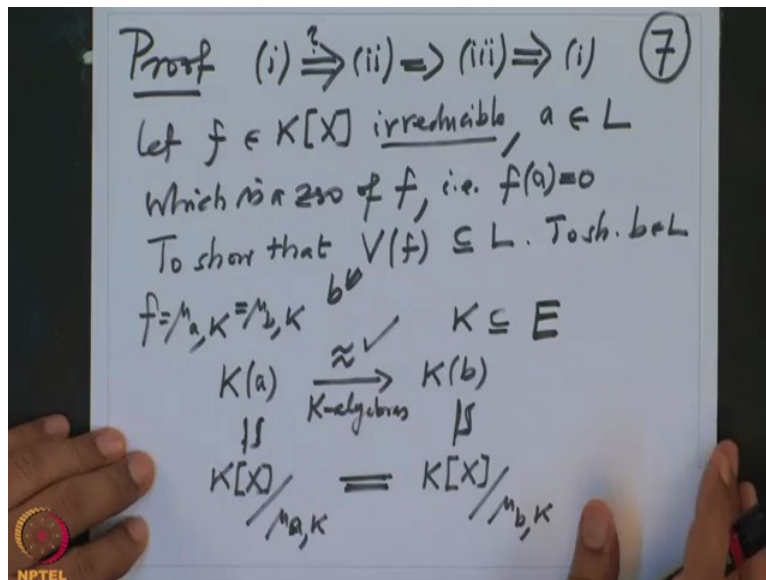 Proof (i) ?⇒ (ii) => (iii) => (i) ⑦
Let f ∈ K[X] irreducible, a ∈ L
which is a zero of f, i.e. f(a)=0
To show that V(f) ⊆ L. To sh. b∈L
b
f=μa,K=μb,K K ⊆ E
K(a) ≈→ ✓ K(b)
K-algebras
K[X]/μa,K = K[X]/μb,K
NPTEL